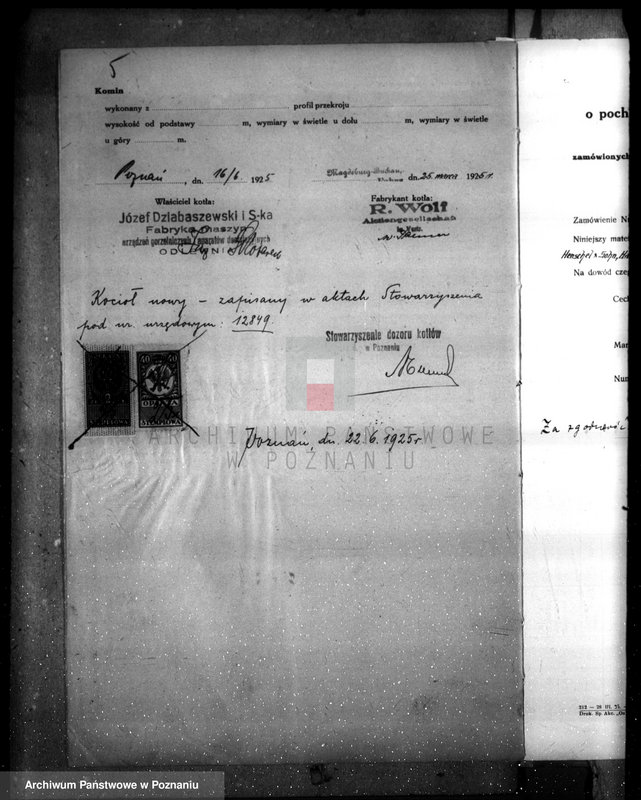 5
Komin
wykonany z profil przekroju
wysokość od podstawy m, wymiary w świetle u dołu m, wymiary w świetle
u góry m.
Poznań, dn. 16/6 1925
Magdeburg-Buckau, dn. 25. marca 1925 r.
Właściciel kotła:
Józef Dziabaszewski i S-ka
Fabryka maszyn
urządzeń gorzelniczych i aparatów
Fabrykant kotła:
R. Wolf
Actiengesellschaft
Kocioł nowy – zapisany w aktach Stowarzyszenia
pod nr. urzędowym: 12849
Stowarzyszenie dozoru kotłów
w Poznaniu
40 40
OPŁATA
STEMPLOWA
Poznań, dn. 22.6.1925 r
ARCHIWUM PAŃSTWOWE
W POZNANIU
o poch
zamówionych
Zamówienie Nr
Niniejszy mate
Henschel & Sohn, Ha
Na dowód czeg
Cech
Mar
Num
Za zgodność
Druk. Sp. Akc.
Archiwum Państwowe w Poznaniu